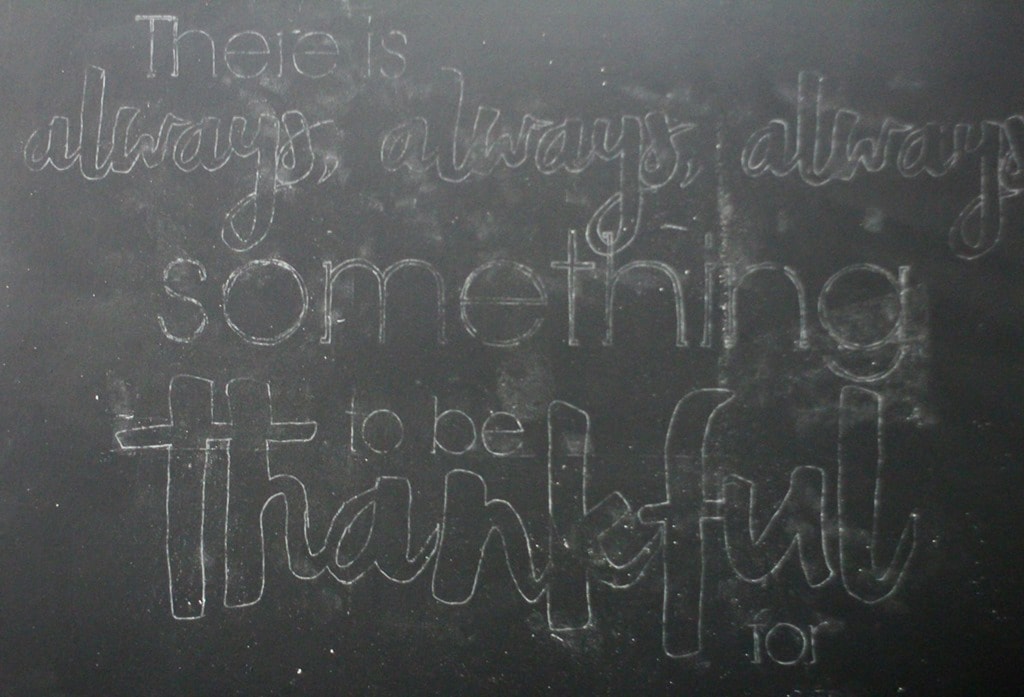 There is
always, always, always
something
to be
thankful
for